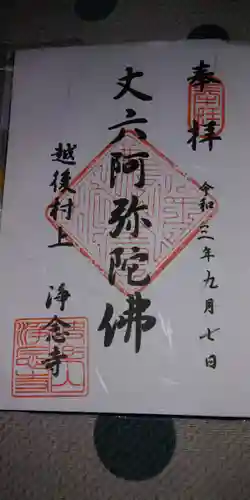 奉拝
令和二年九月七日
丈六阿弥陀佛
越後村上
浄念寺